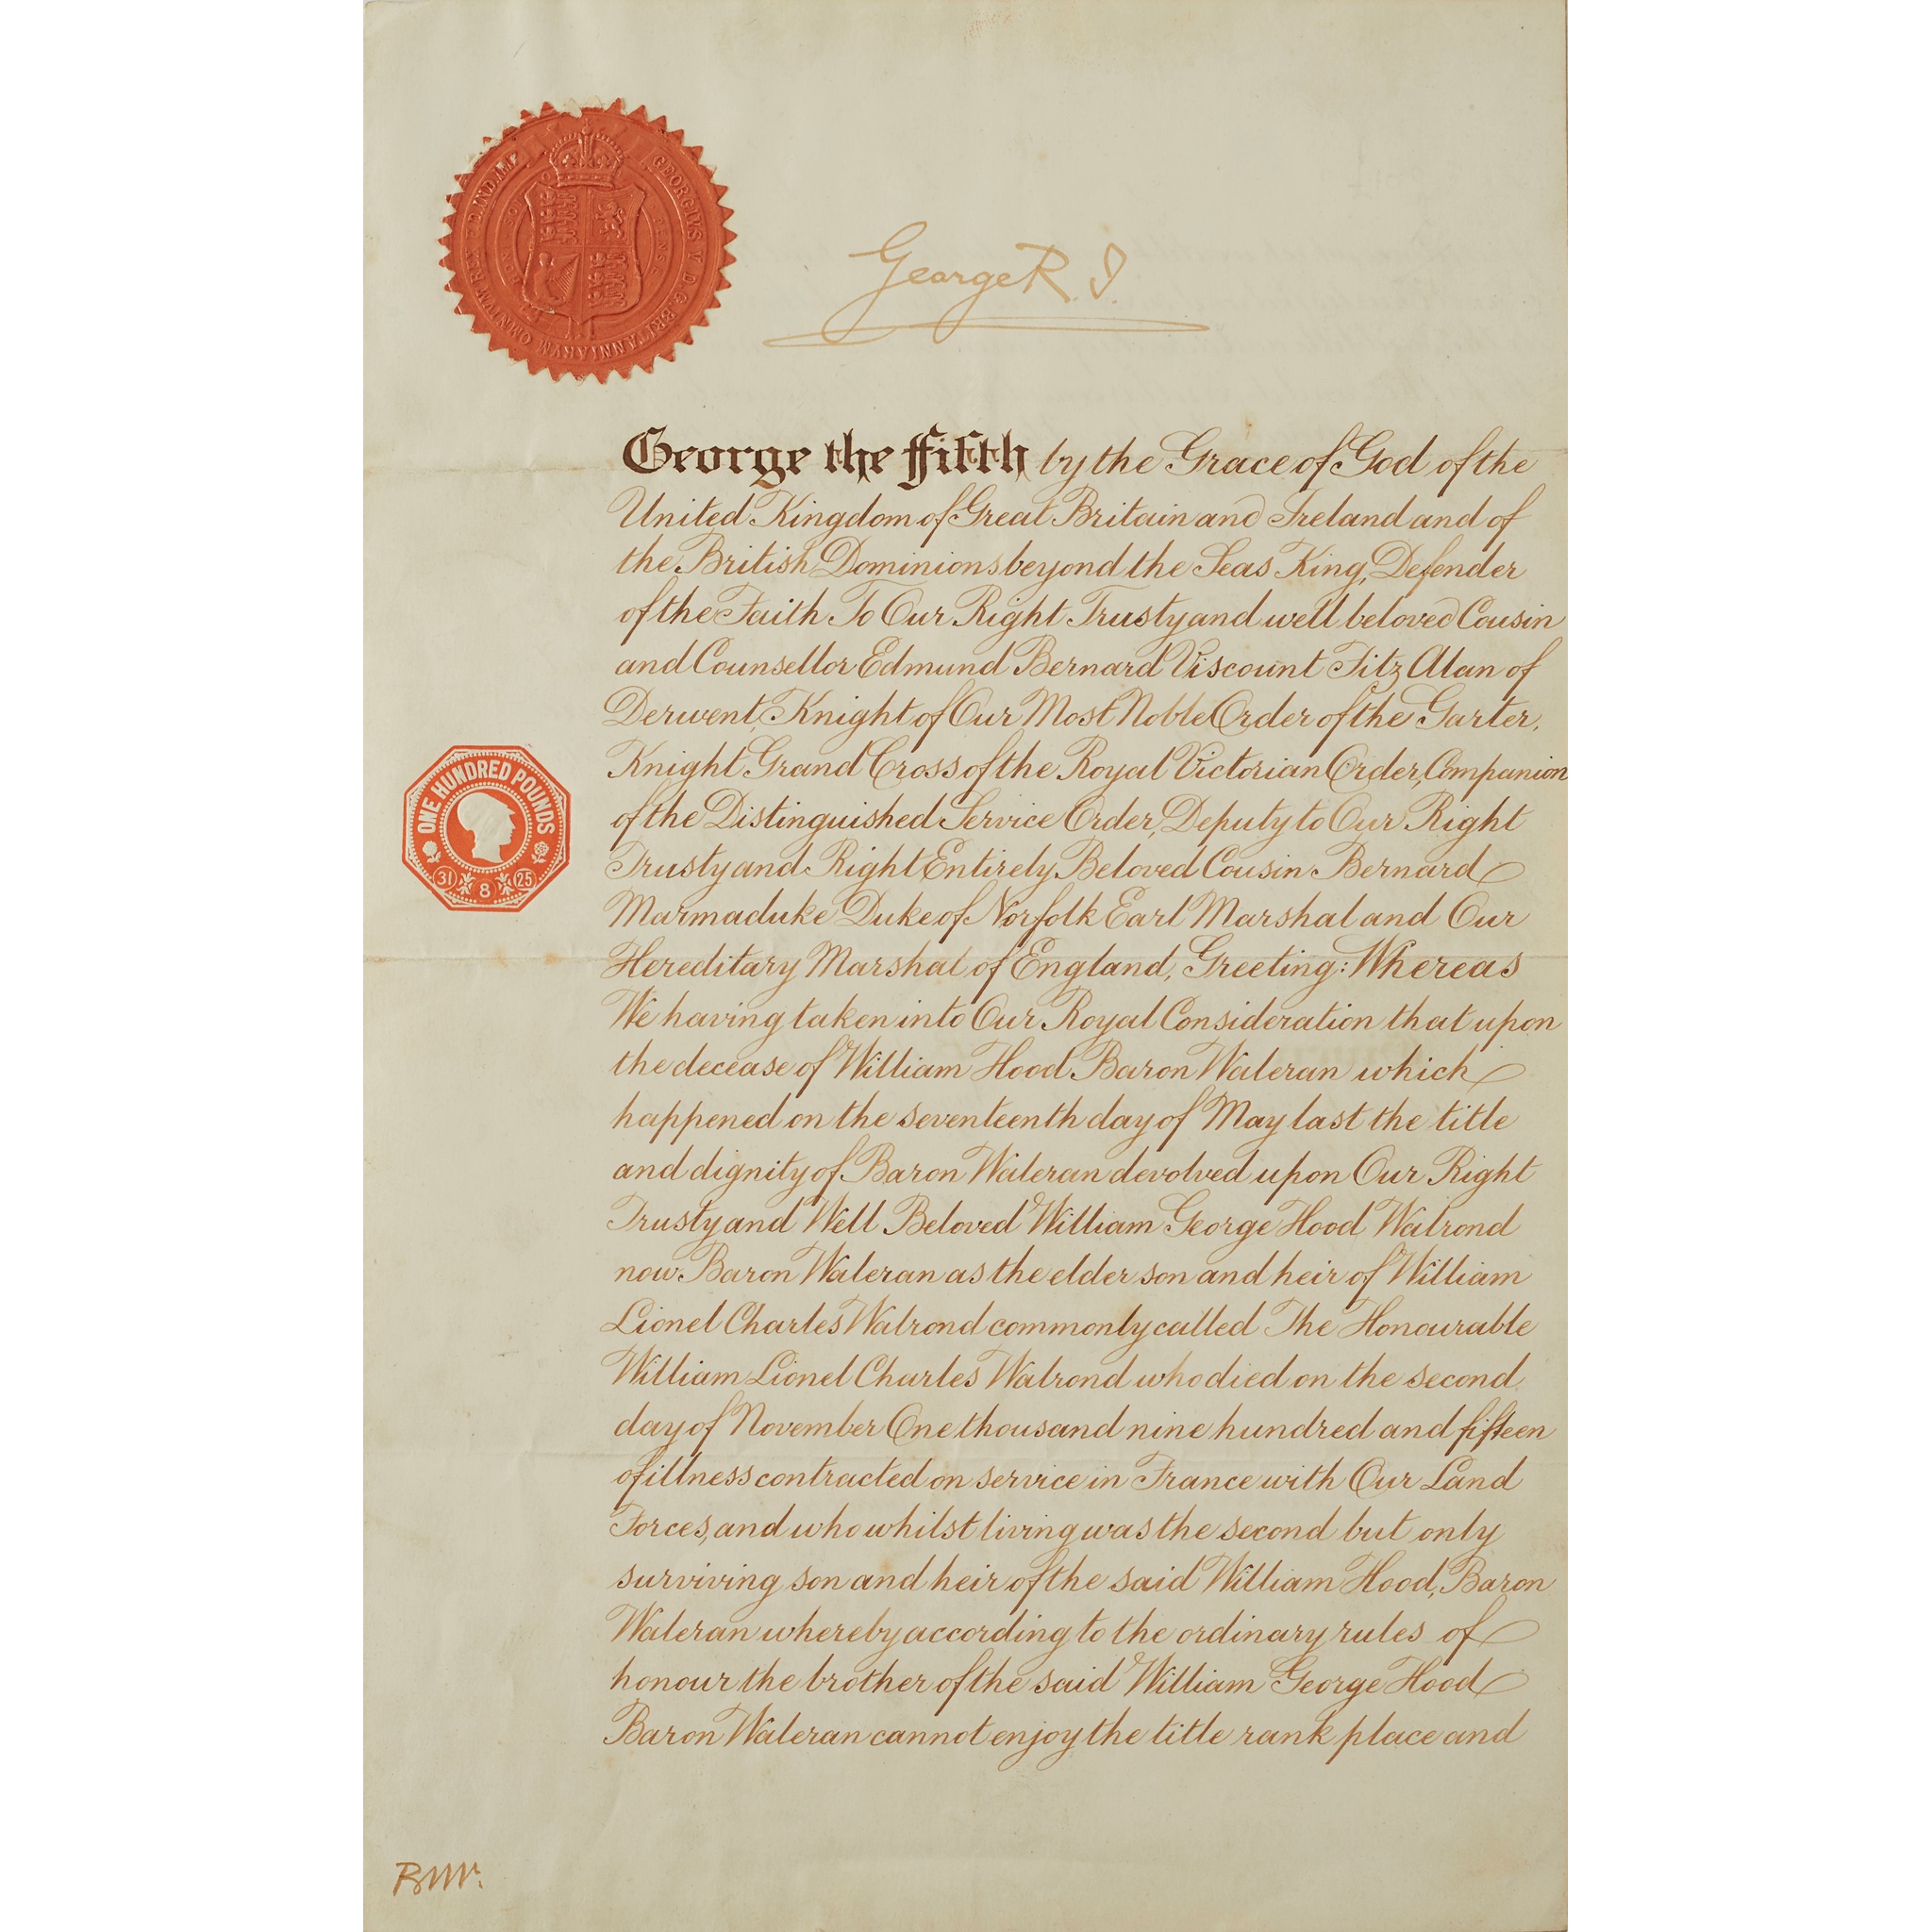 GEORGIVS V D.G. BRITANNIARVM OMNIVM REX F.D. IND. IMP.
HONI SOIT PENSE
George R. I.
George the fifth by the Grace of God of the
United Kingdom of Great Britain and Ireland and of
the British Dominions beyond the Seas King, Defender
of the Faith To Our Right Trusty and well beloved Cousin
and Counsellor Edmund Bernard Viscount Fitz Alan of
Derwent, Knight of Our Most Noble Order of the Garter,
Knight Grand Cross of the Royal Victorian Order, Companion
of the Distinguished Service Order, Deputy to Our Right
Trusty and Right Entirely Beloved Cousin Bernard
Marmaduke Duke of Norfolk Earl Marshal and Our
Hereditary Marshal of England, Greeting: Whereas
We having taken into Our Royal Consideration that upon
the decease of William Hood Baron Waleran which
happened on the seventeenth day of May last the title
and dignity of Baron Waleran devolved upon Our Right
Trusty and Well Beloved William George Hood Walrond
now Baron Waleran as the elder son and heir of William
Lionel Charles Walrond commonly called The Honourable
William Lionel Charles Walrond who died on the second
day of November One thousand nine hundred and fifteen
of illness contracted on service in France with Our Land
Forces, and who whilst living was the second but only
surviving son and heir of the said William Hood, Baron
Waleran whereby according to the ordinary rules of
honour the brother of the said William George Hood
Baron Waleran cannot enjoy the title rank place and
ONE HUNDRED POUNDS
31 8 25